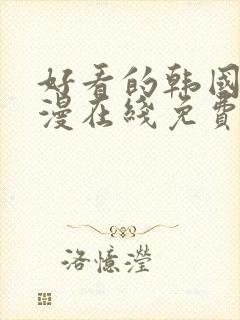 好看的韩国
漫在线免费
洛憶瀅